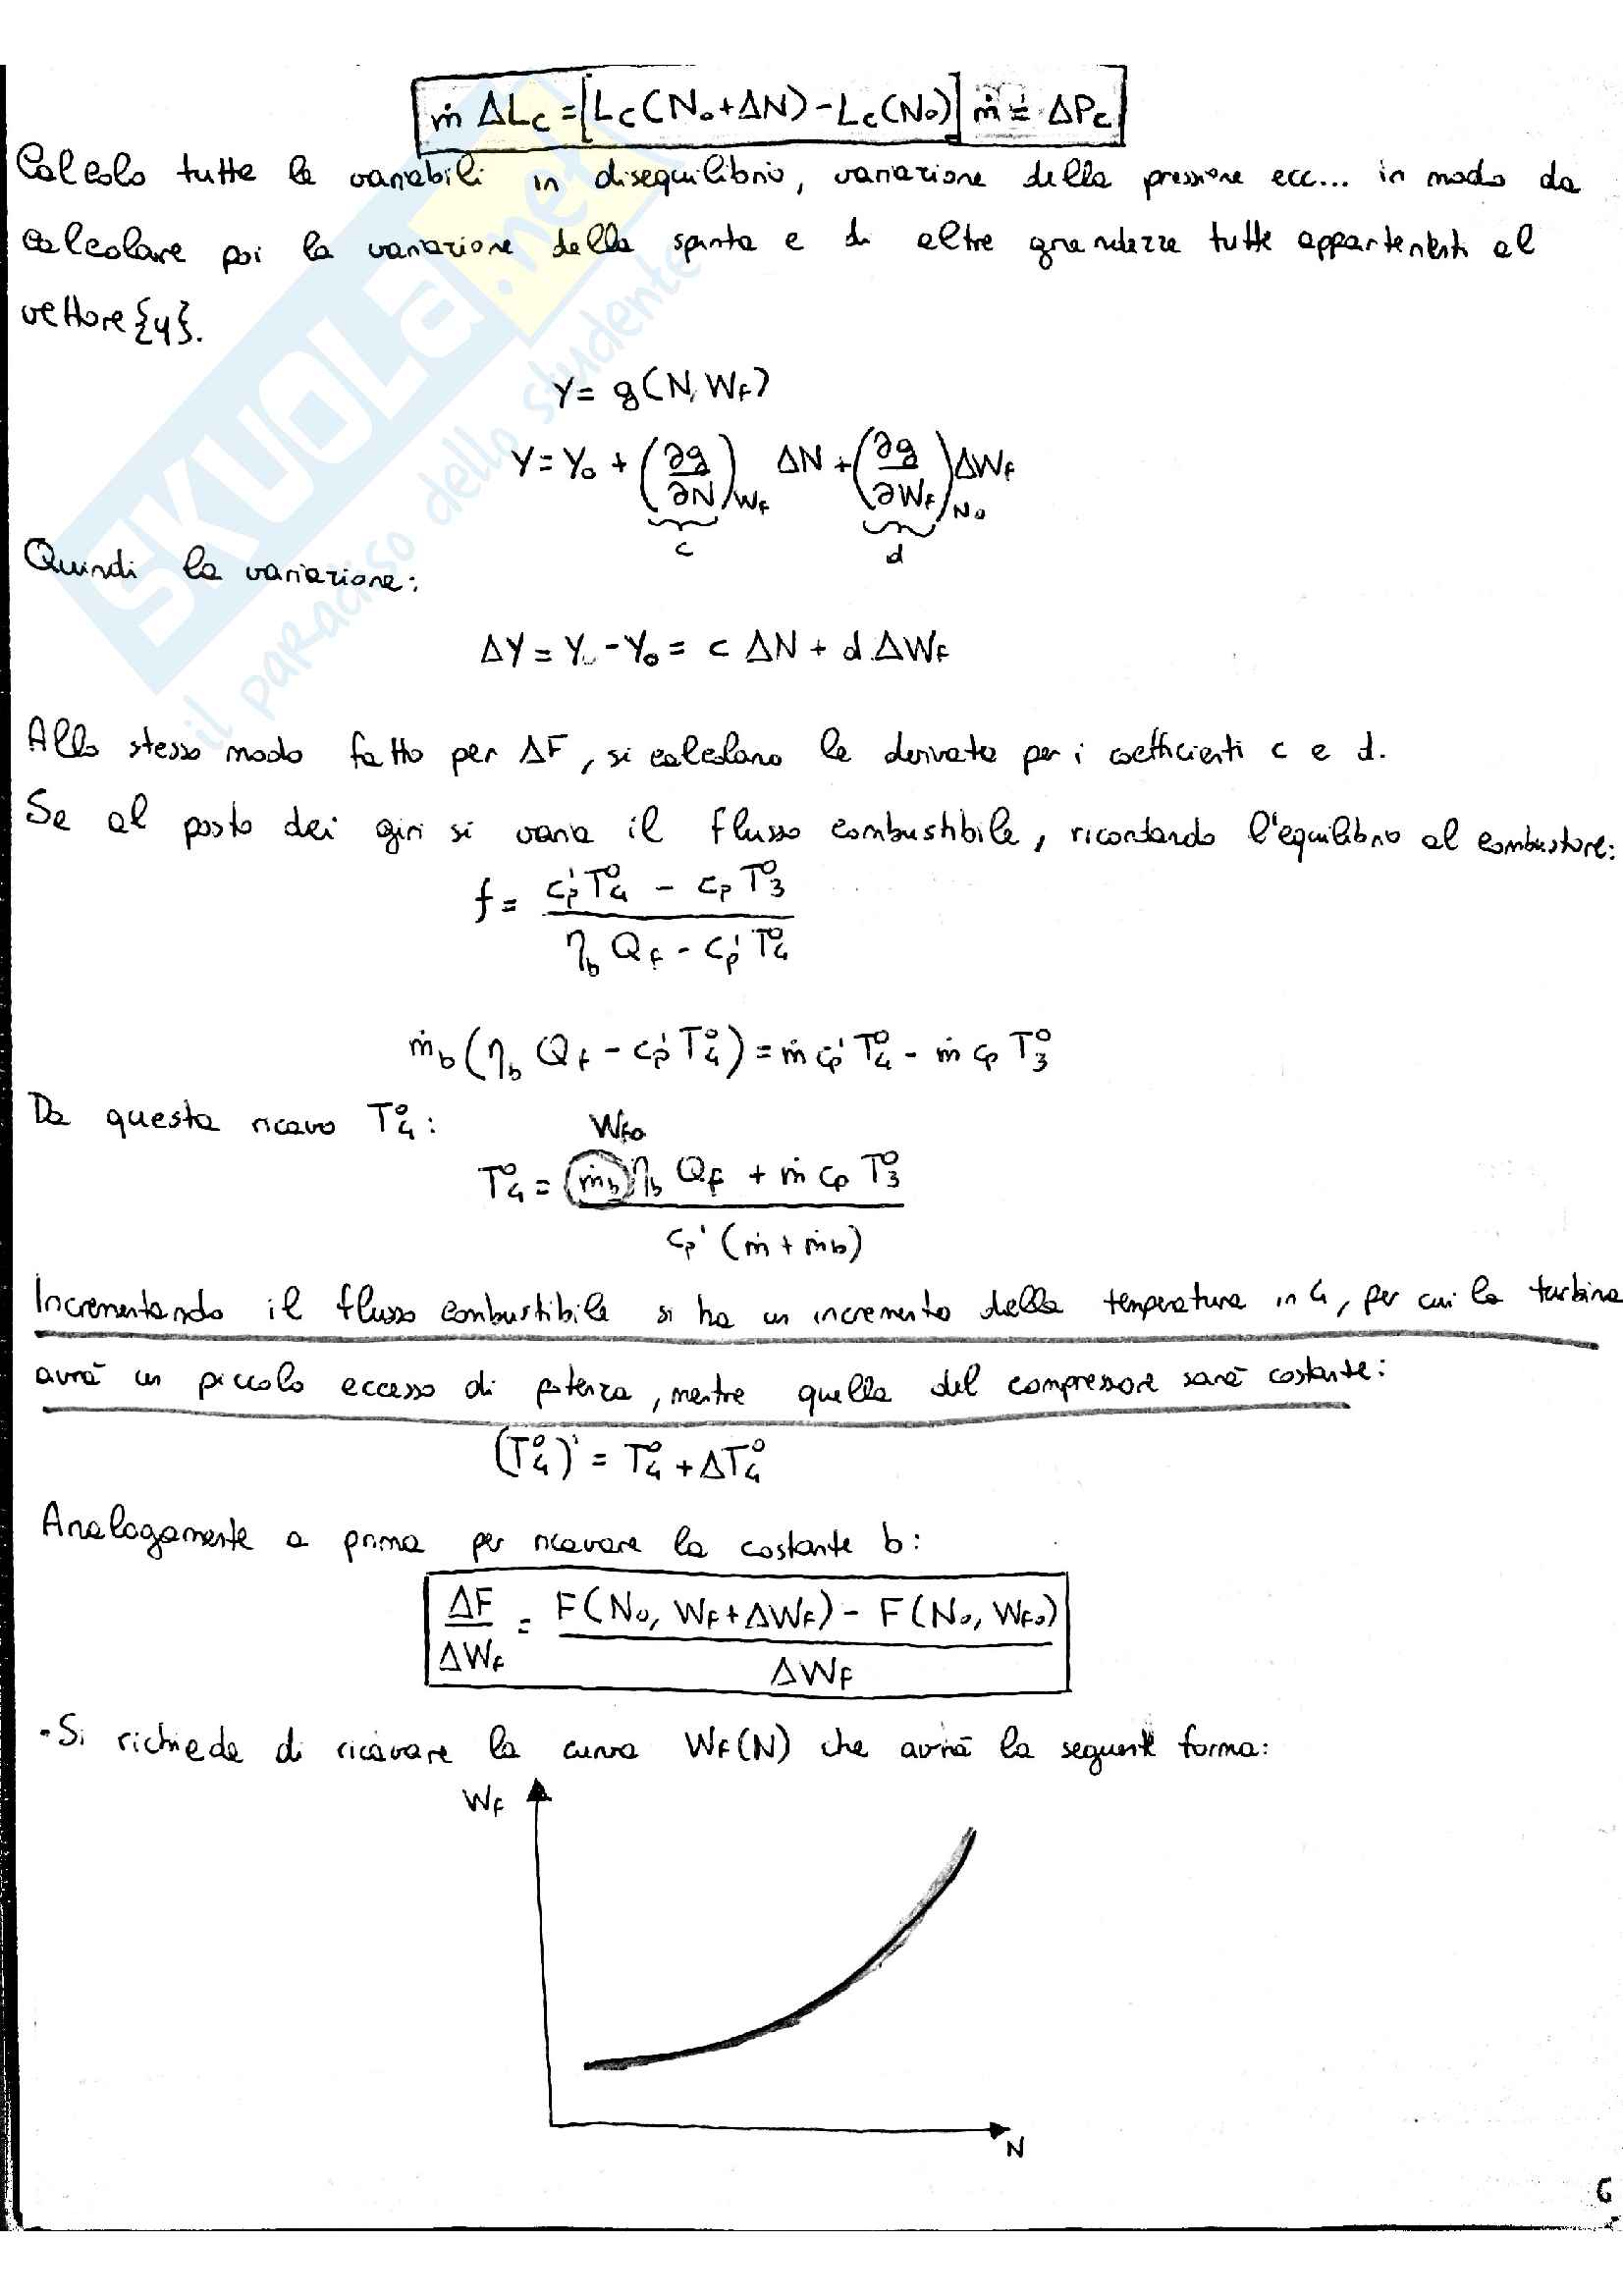 ṁ ΔLc = [Lc(N₀+ΔN) - Lc(N₀)] ṁ = ΔPc
Calcolo tutte le variabili in disequilibrio, variazione della pressione ecc... in modo da
calcolare poi la variazione della spinta e di altre grandezze tutte appartenenti al
vettore {y}.
Y = g(N, WF)
Y = Y₀ + (∂g/∂N)WF ΔN + (∂g/∂WF)N₀ ΔWF
c d
Quindi la variazione:
ΔY = Y - Y₀ = c ΔN + d ΔWF
Allo stesso modo fatto per ΔF, si calcolano le derivate per i coefficienti c e d.
Se al posto dei giri si varia il flusso combustibile, ricordando l'equilibrio al combustore:
f = (cp' T₄⁰ - cp T₃⁰) / (ηb Qf - cp' T₄⁰)
ṁb (ηb Qf - cp' T₄⁰) = ṁ cp' T₄⁰ - ṁ cp T₃⁰
Da questa ricavo T₄⁰:
WF₀
T₄⁰ = (ṁb ηb Qf + ṁ cp T₃⁰) / (cp' (ṁ + ṁb))
Incrementando il flusso combustibile si ha un incremento della temperatura in 4, per cui la turbina
avrà un piccolo eccesso di potenza, mentre quella del compressore sarà costante:
(T₄⁰)' = T₄⁰ + ΔT₄⁰
Analogamente a prima per ricavare la costante b:
ΔF/ΔWF = (F(N₀, WF+ΔWF) - F(N₀, WF₀)) / ΔWF
- Si richiede di ricavare la curva WF(N) che avrà la seguente forma:
WF
N
6
SKUOLA.net
il paradiso dello studente